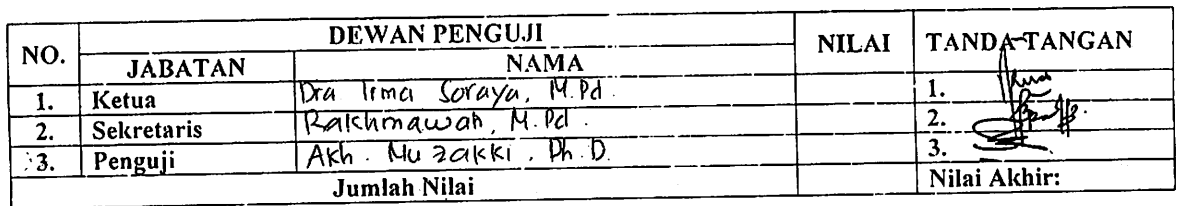 NO. DEWAN PENGUJI NILAI TANDA TANGAN
JABATAN NAMA
1. Ketua Dra Irma Soraya, M.Pd. 1.
2. Sekretaris Rakhmawati, M.Pd. 2.
3. Penguji Akh. Muzakki, Ph.D. 3.
Jumlah Nilai Nilai Akhir: